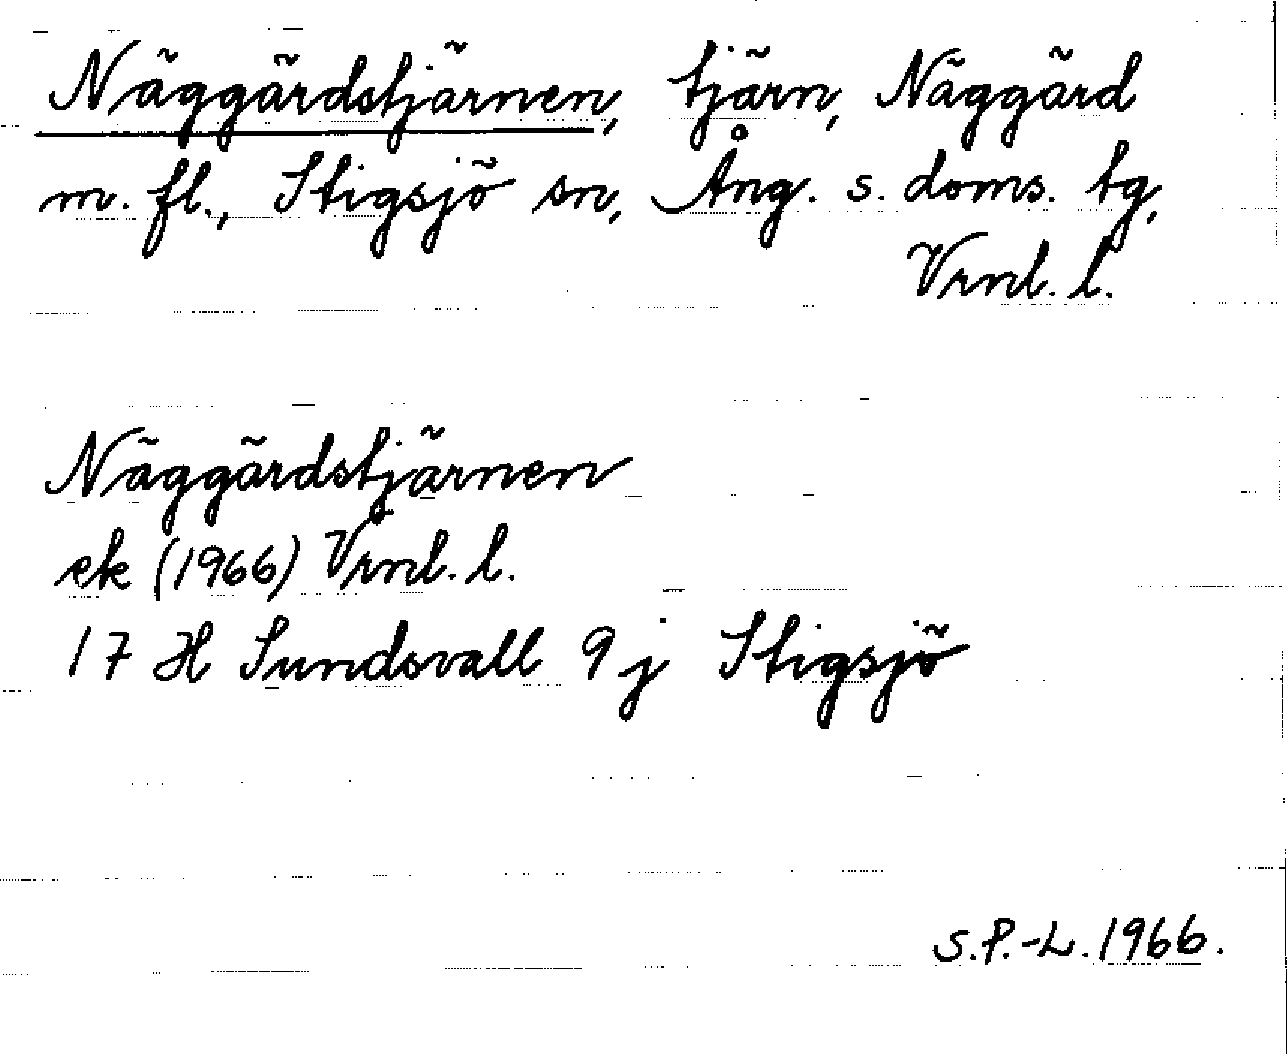 Näggärdstjärnen, tjärn, Näggärd
m. fl., Stigsjö sn, Ång. s. doms. tg,
Vrnl. l.
Näggärdstjärnen
ek (1966) Vrnl. l.
17 H Sundsvall 9 j Stigsjö
S.P.-L. 1966.